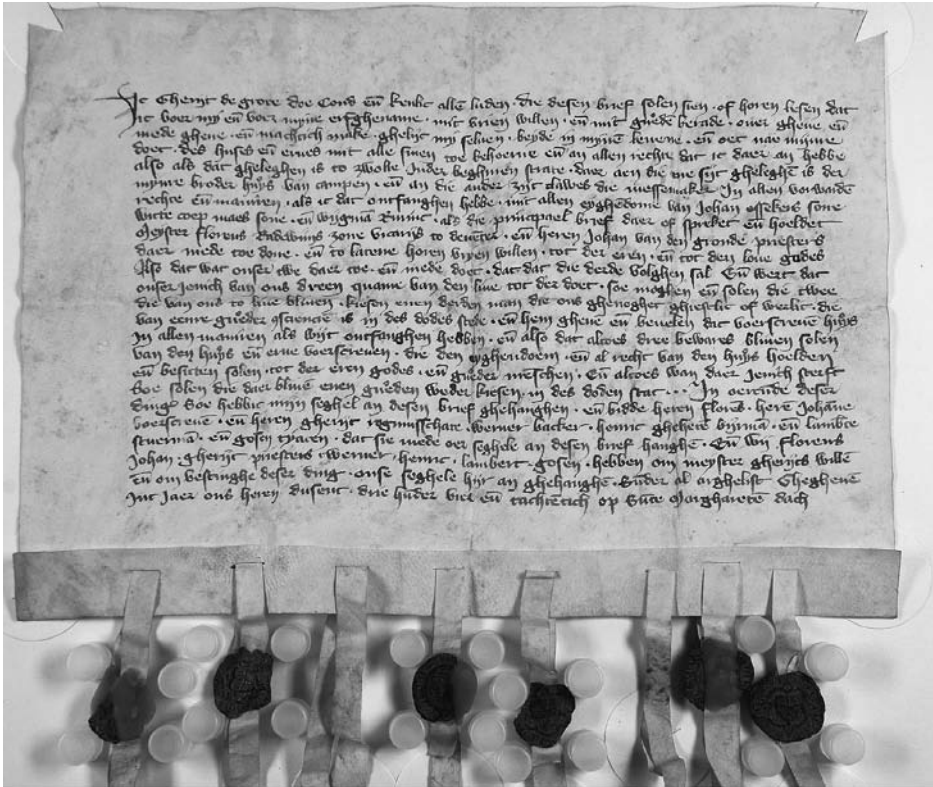 Ic Gheriit de grote doe cond en̄ kenlic allē luden · die desen brief solen sien · of horen lesen dat
ic voer my en̄ voer myne erfghename · mit vrien willen · en̄ mit guede berade · over gheve en̄
mede gheve · en̄ machtich make · ghelijc my selven · beyde in mynē levene · en̄ oec nae mijnre
doet · des huses en̄ erves mit alle sinen toe behoerne en̄ an allen rechte dat ic daer an hebbe
also als dat gheleghen is to zwolle · In der beghinen strate · daer aen die ene sijt gheleghē is der
mynre broder huys van campen · en̄ an die ander zijt clawes die messemaker In allen vorwardē
rechte en̄ maniren · als ic dat ontfanghen hebbe · mit allen eyghēdome van Johan essekens sone
witte coep maes sone · en̄ wijgmā · als die principael brief daer of sprket en̄ hoeldet
Meyster florens Radawijns zone vicarijs to devēter · en̄ heren Johan van den gronde priesters
daer mede toe done · en̄ to latene horen vryen willen · tot der eren · en̄ tot den love godes
Also dat wat onser twe daer toe · en̄ mede doet · dat dat die derde volghen sal En̄ wert dat
onser jenich van ons dreen quame van den live tot der doet · soe moghen en̄ solen die twee
die van ons to live bliven · kiesen enen derden man die ons ghenoghet ghiestlic of werlic · die
van eenre gueder ꝯsciencie is in des dodes stede · en̄ hem gheve en̄ bevelen dat voerscrevē huijs
In allen maniren als wijt ontfanghen hebben · en̄ also dat altoes dree bewares bliven solen
van den huijs en̄ erve voerscreven · die den eyghendoem · en̄ al recht van den huijs hoelden
en̄ besitten solen · tot der eren godes · en̄ gueder meschen · En̄ altoes wan daer jenich sterft
Soe solen die daer blivē enen gueden weder kiesen · in des doden stat · · · In oerende deser
dingē Soe hebbic mijn seghel an desen brief ghehanghen · en̄ bidde heren florēs · herē Johāne
voerscrevē · en̄ heren gherijt · werner backer · henric ghehetē · en̄ lambte
stuermā · en̄ gosen · dat sie mede oer seghele an desen brief hanghē · En̄ wij florens
Johan · gherijt priesters · werner · henric · lambert · gosen · hebben om meyster gherijts willē
En̄ om vestinghe deser ding · onse seghele hijr an ghehanghē · Sūder al arghelist Gheghevē
Int jaer ons heren dusent · drie hūder vier en̄ tachtētich op Sūte Margharetē dach